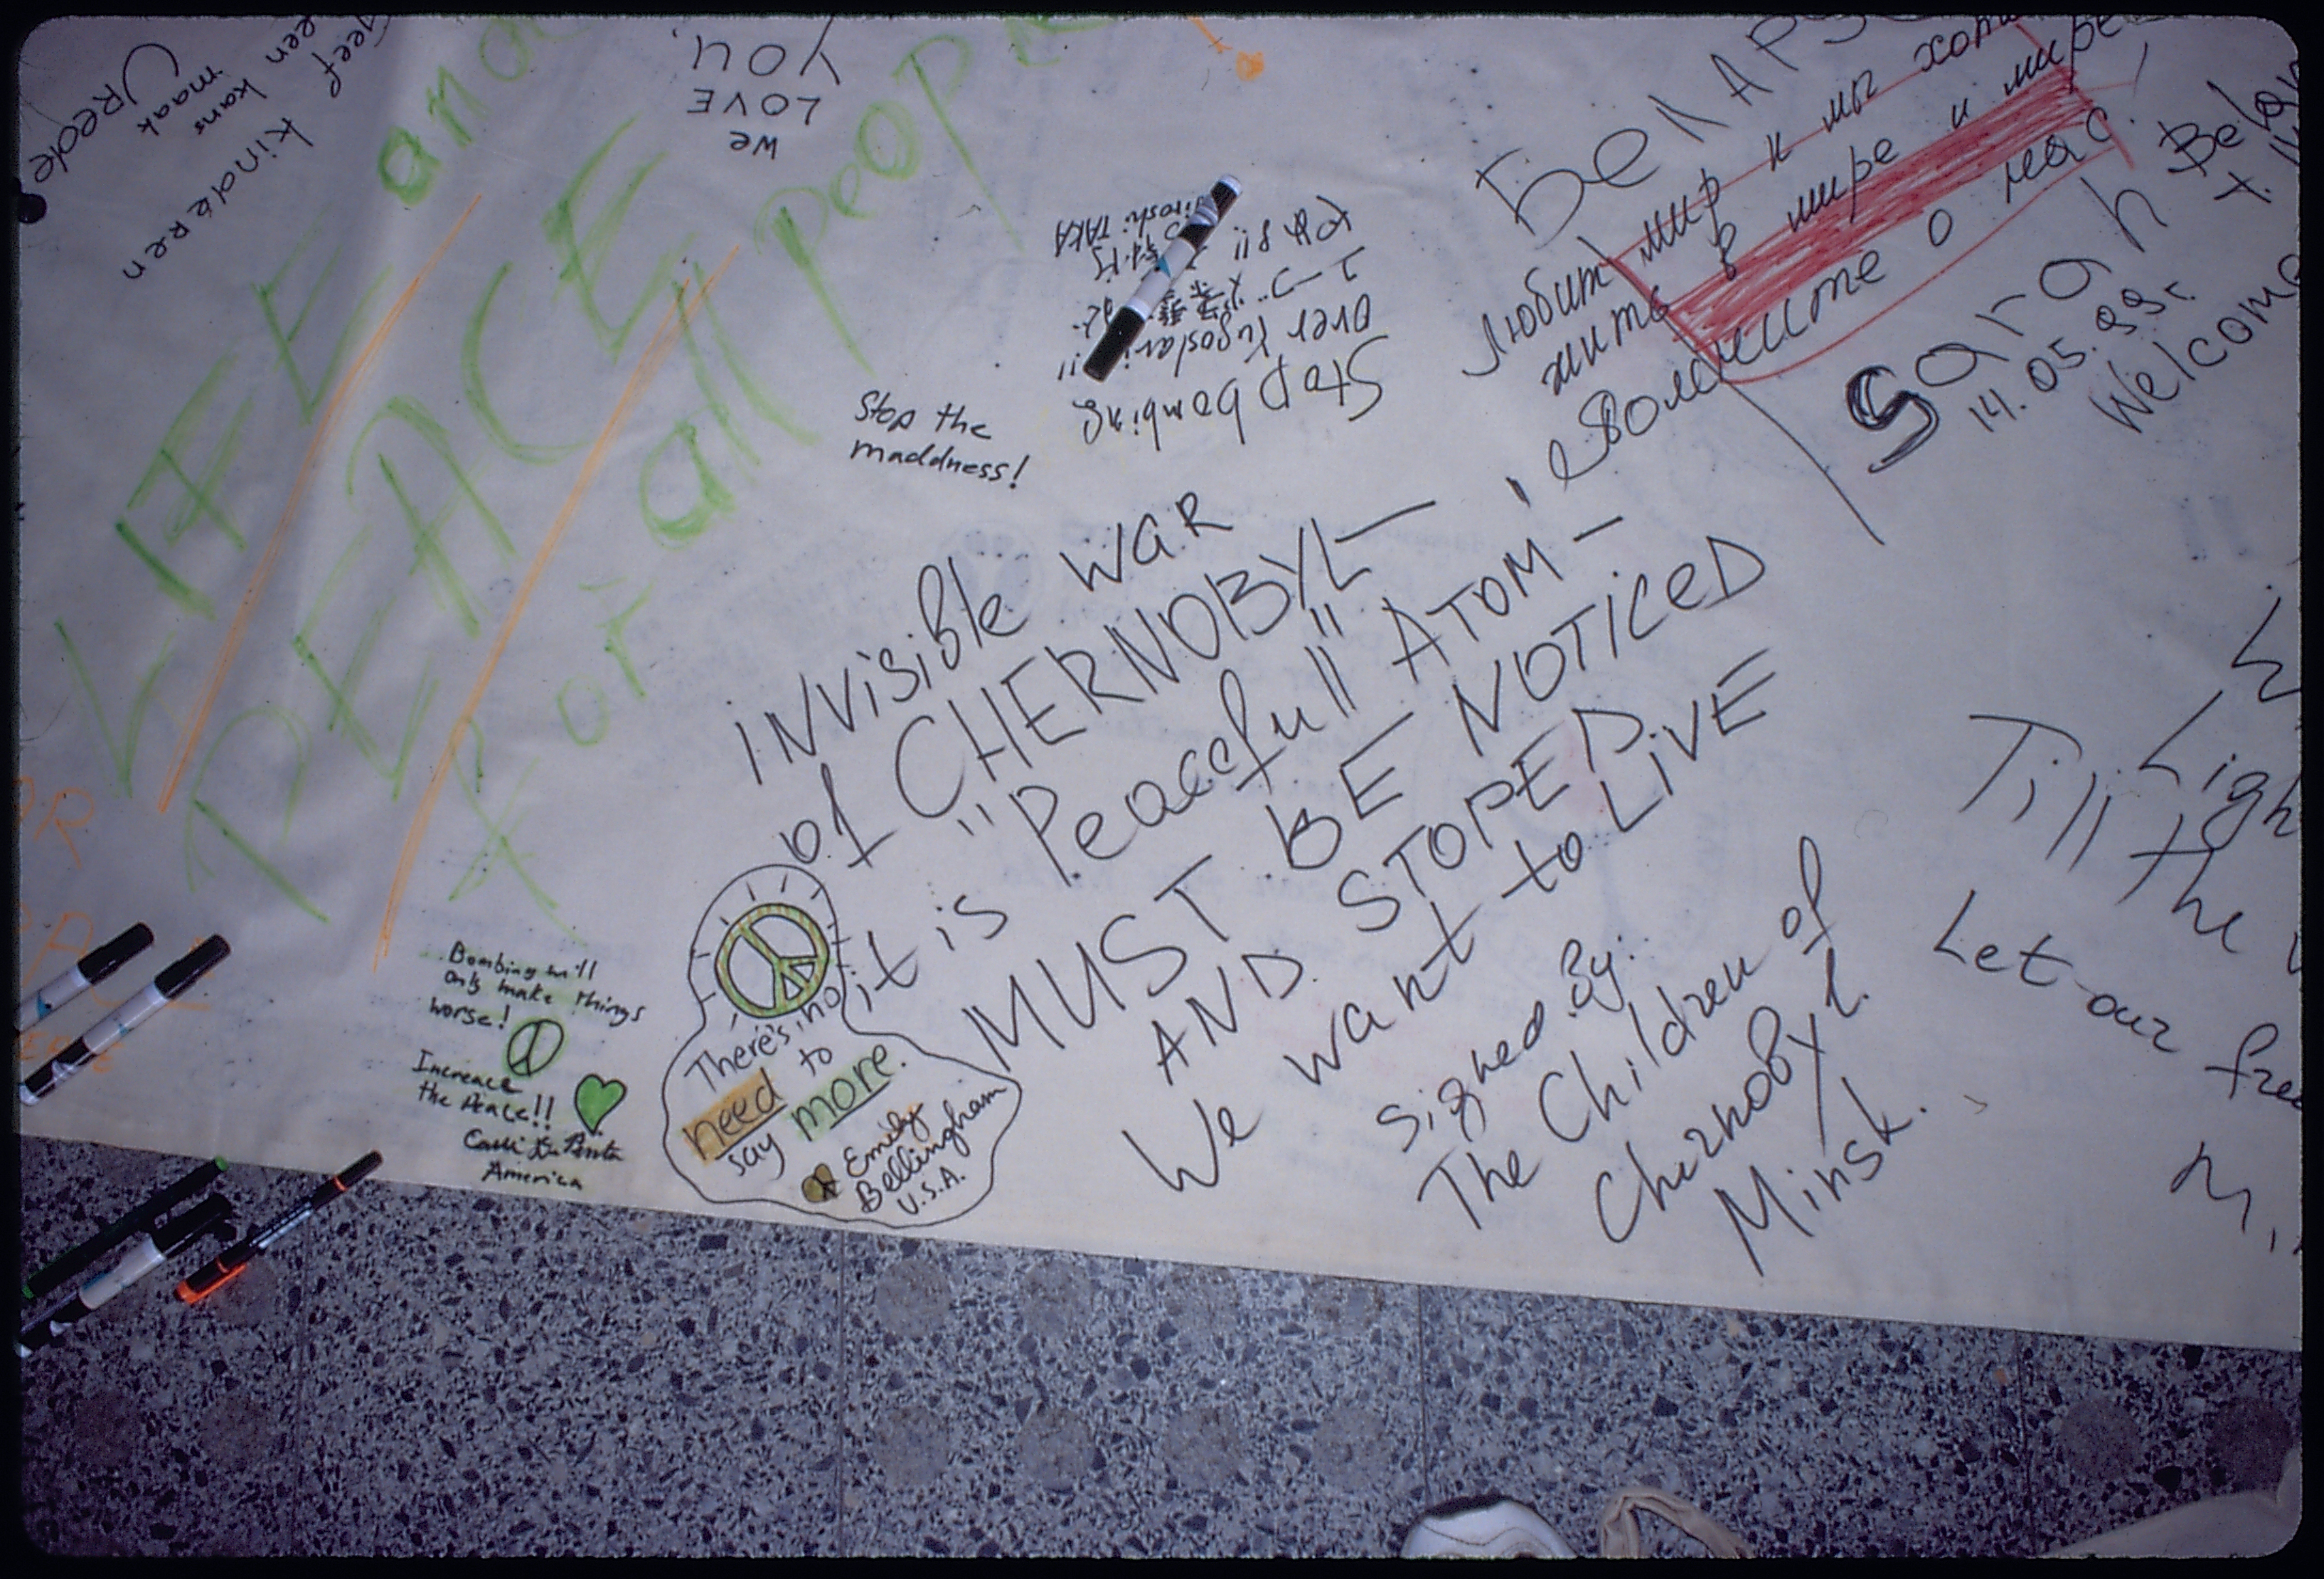 Vrede
maak
een kans
geef
kinderen
LIFE and
PEACE
for all peop
We
LOVE
YOU.
Stop bombing
over Yugoslavi !!
Hiroshi TAKA
Stop the
maddness!
Любит мир и мы хот
жить в мире и мире
о нас!
Sarah
14.05.99г.
Welcome
INVISIBLE WAR
of CHERNOBYL —
it is "Peacefull" ATOM —
MUST BE NOTICED
AND STOPED.
We want to LIVE
Signed By:
The Children of
Chernobyl.
Minsk.
Till
Ligh
the
Let our free
Bombing will
only make things
worse!
Increace
the Peace!!
America
There's no
need to
say more.
Emily
Bellingham
U.S.A.